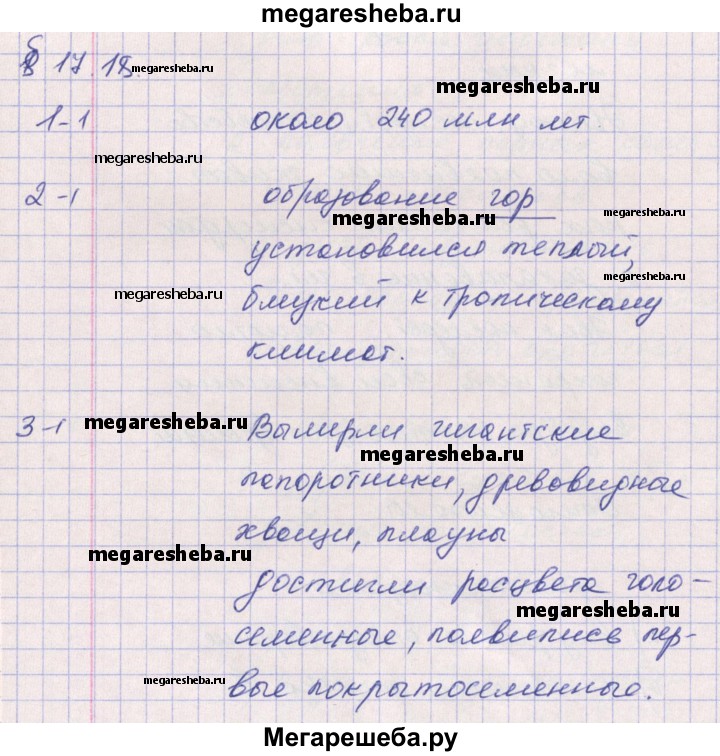 megaresheba.ru
§ 17.18. megaresheba.ru
megaresheba.ru
1-1 около 240 млн лет.
megaresheba.ru
2-1 образование гор
megaresheba.ru megaresheba.ru
установился теплый,
megaresheba.ru
megaresheba.ru близкий к тропическому
климат.
3-1 megaresheba.ru Вымерли гигантские
megaresheba.ru
папоротники, древовидные
хвощи, плауны
megaresheba.ru
достигли расцвета голо-
megaresheba.ru
семенные, появились пер-
megaresheba.ru вые покрытосеменные.
Мегарешеба.ру